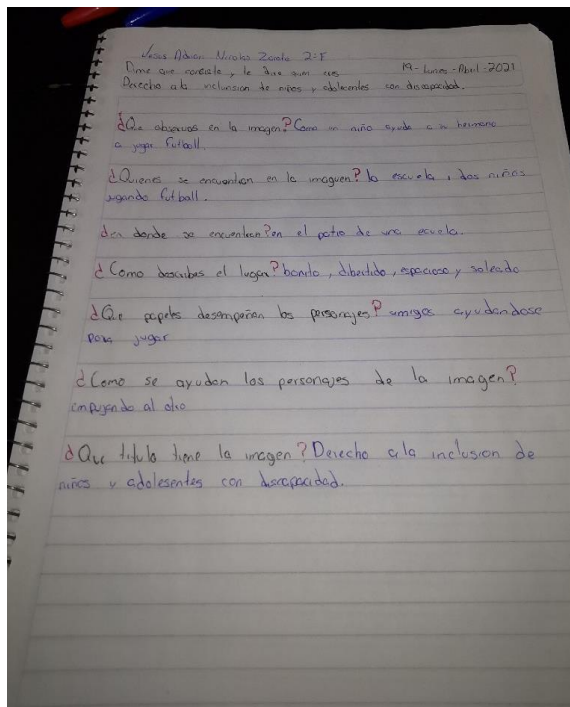 Jesus Adrian Nicolas Zarate 2-F
Dime que conciste y te dire quin eres 19-Lunes-Abril-2021
Derecho ala inclunsion de niños y adolecentes con discapacidad.
¿Que observas en la imagen? Como un niño ayuda a su hermano
a jugar futball.
¿Quienes se encuentran en la imaguen? la escuela, dos niños
jugando futball.
¿en donde se encuentran? en el patio de una escuela.
¿Como describes el lugar? bonito, dibertido, espacioso y soleado
¿Que papeles desempeñan los personajes? amigos ayudandose
para jugar
¿Como se ayudan los personajes de la imagen?
empujando al otro
¿Que titulo tiene la imagen? Derecho ala inclusion de
niños y adolesentes con discapacidad.